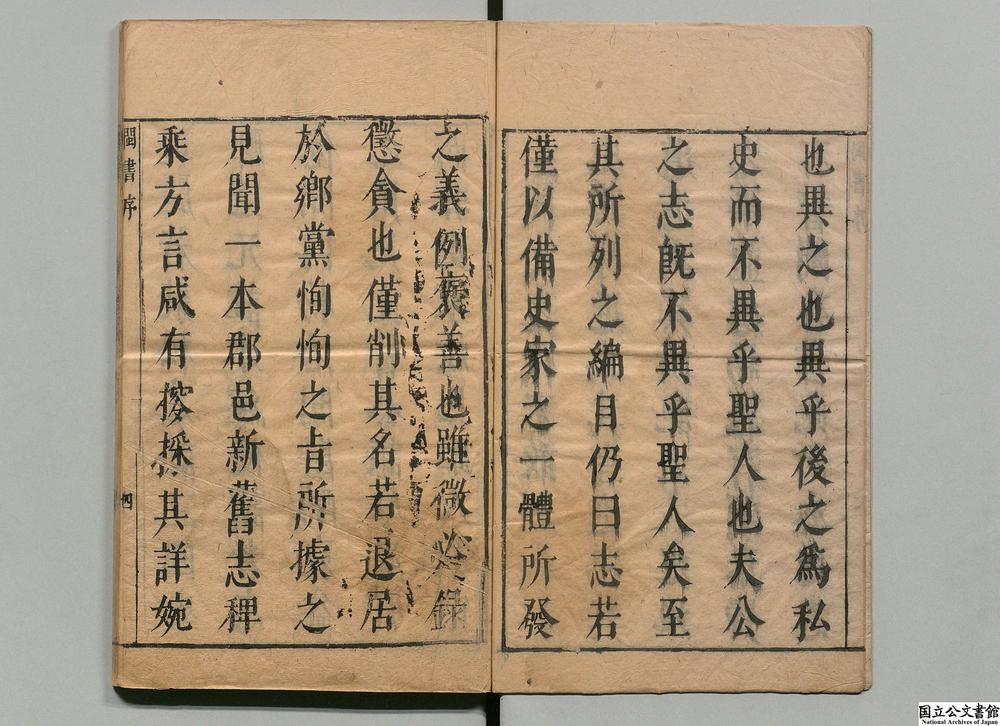 也異之也異乎後之爲私
史而不異乎聖人也夫公
之志旣不異乎聖人矣至
其所列之編目仍曰志若
僅以備史家之一體所發
之義例褒善也雖微必錄
懲貪也僅削其名若退居
於鄉黨恂恂之旨所據之
見聞一元本郡邑新舊志稗
乘方言咸有搜採其詳婉
閩書序
四
国立公文書館
National Archives of Japan